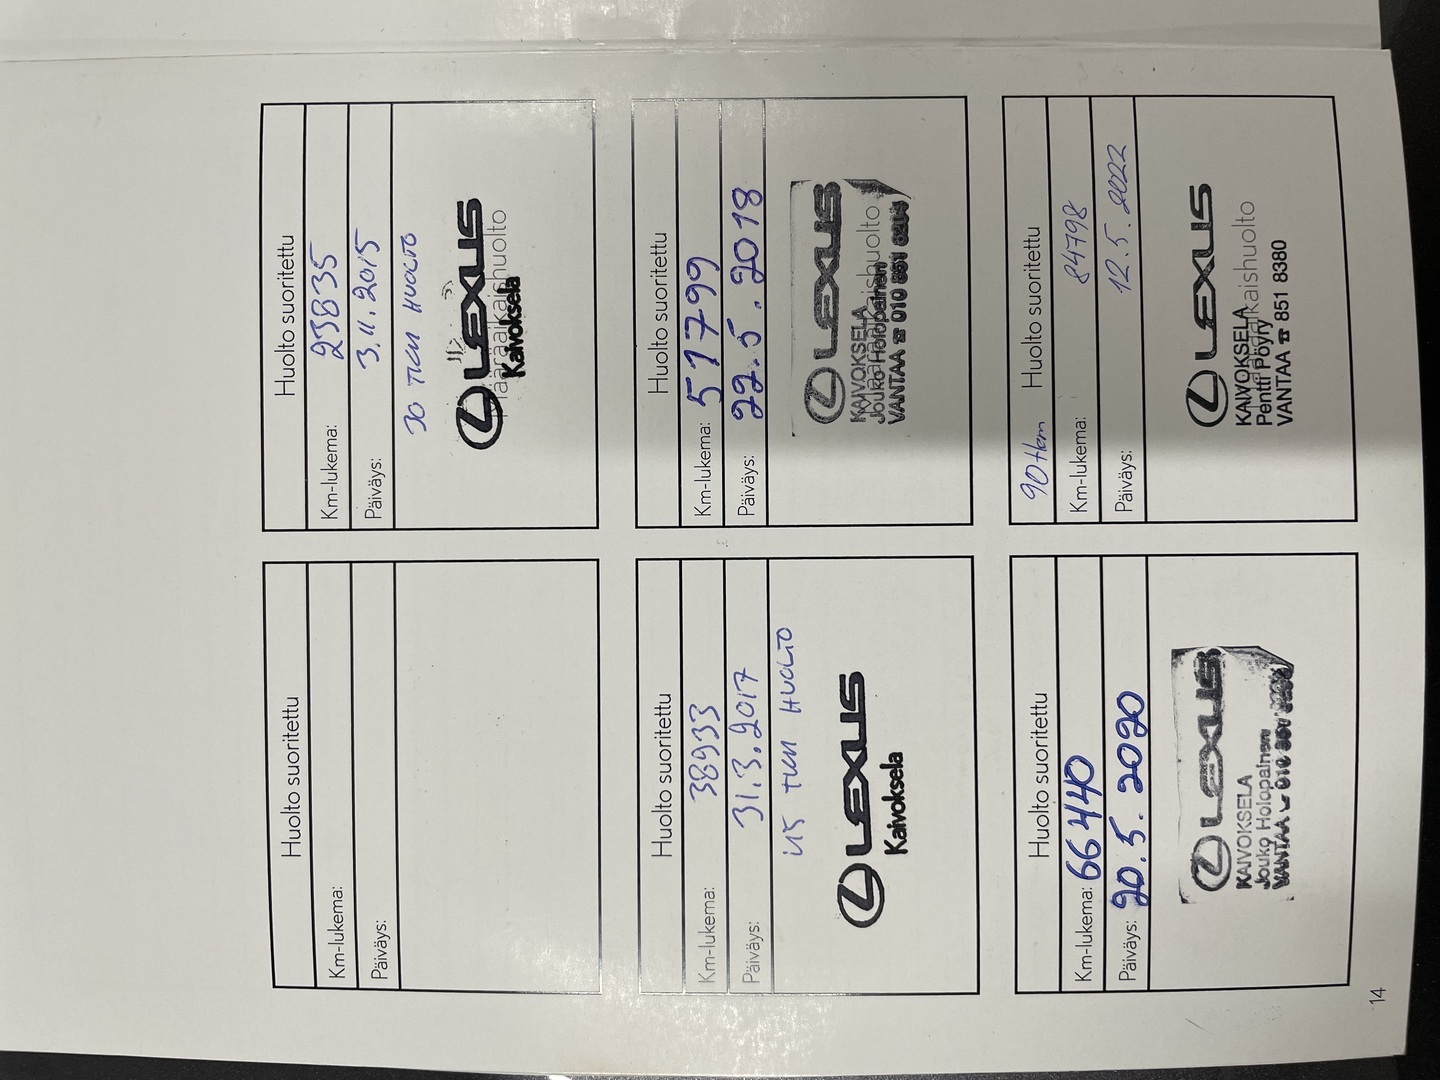 Huolto suoritettu
Km-lukema:
Päiväys:
Huolto suoritettu
Km-lukema: 23835
Päiväys: 3.11.2015
30 TKM HUOLTO
LEXUS
Kaivoksela
Määräaikaishuolto
Huolto suoritettu
Km-lukema: 38933
Päiväys: 31.3.2017
45 TKM HUOLTO
LEXUS
Kaivoksela
Huolto suoritettu
Km-lukema: 51799
Päiväys: 22.5.2018
LEXUS
Määräaikaishuolto
KAIVOKSELA
Jouko Holopainen
VANTAA ☎ 010 851
Huolto suoritettu
Km-lukema: 66440
Päiväys: 20.5.2020
LEXUS
KAIVOKSELA
Jouko Holopainen
VANTAA 010
90tkm Huolto suoritettu
Km-lukema: 84798
Päiväys: 12.5.2022
LEXUS
Määräaikaishuolto
KAIVOKSELA
Pentti Pöyry
VANTAA ☎ 851 8380
14